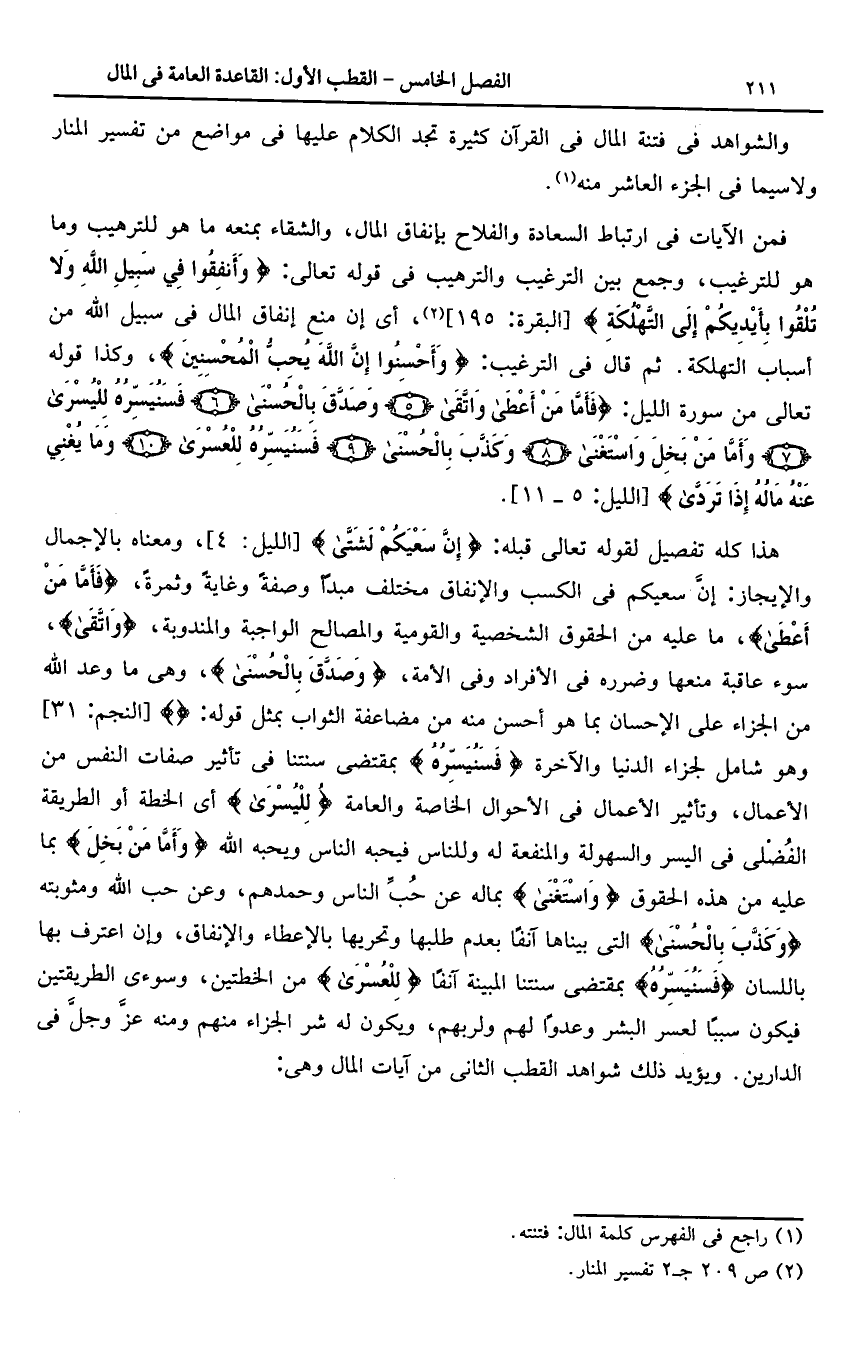 ٢١١
الفصل الخامس – القطب الأول: القاعدة العامة فى المال
والشواهد فى فتنة المال فى القرآن كثيرة تجد الكلام عليها فى مواضع من تفسير المنار
ولاسيما فى الجزء العاشر منه(١).
فمن الآيات فى ارتباط السعادة والفلاح بإنفاق المال، والشقاء بمنعه ما هو للترهيب وما
هو للترغيب، وجمع بين الترغيب والترهيب فى قوله تعالى: ﴿ وَأَنفِقُوا فِي سَبِيلِ اللَّهِ وَلا
تُلْقُوا بِأَيْدِيكُمْ إِلَى التَّهْلُكَةِ ﴾ [البقرة: ١٩٥](٢)، أى إن منع إنفاق المال فى سبيل الله من
أسباب التهلكة. ثم قال فى الترغيب: ﴿ وَأَحْسِنُوا إِنَّ اللَّهَ يُحِبُّ الْمُحْسِنِينَ ﴾، وكذا قوله
تعالى من سورة الليل: ﴿فَأَمَّا مَنْ أَعْطَىٰ وَاتَّقَىٰ ﴿٥﴾ وَصَدَّقَ بِالْحُسْنَىٰ ﴿٦﴾ فَسَنُيَسِّرُهُ لِلْيُسْرَىٰ
﴿٧﴾ وَأَمَّا مَنْ بَخِلَ وَاسْتَغْنَىٰ ﴿٨﴾ وَكَذَّبَ بِالْحُسْنَىٰ ﴿٩﴾ فَسَنُيَسِّرُهُ لِلْعُسْرَىٰ ﴿١٠﴾ وَمَا يُغْنِي
عَنْهُ مَالُهُ إِذَا تَرَدَّىٰ ﴾ [الليل: ٥ ــ ١١].
هذا كله تفصيل لقوله تعالى قبله: ﴿ إِنَّ سَعْيَكُمْ لَشَتَّىٰ ﴾ [الليل: ٤]، ومعناه بالإجمال
والإيجاز: إنَّ سعيكم فى الكسب والإنفاق مختلف مبدأ وصفةً وغايةً وثمرةً، ﴿فَأَمَّا مَنْ
أَعْطَىٰ﴾، ما عليه من الحقوق الشخصية والقومية والمصالح الواجبة والمندوبة، ﴿وَاتَّقَىٰ﴾،
سوء عاقبة منعها وضرره فى الأفراد وفى الأمة، ﴿ وَصَدَّقَ بِالْحُسْنَىٰ ﴾، وهى ما وعد الله
من الجزاء على الإحسان بما هو أحسن منه من مضاعفة الثواب بمثل قوله: ﴿﴾ [النجم: ٣١]
وهو شامل لجزاء الدنيا والآخرة ﴿ فَسَنُيَسِّرُهُ ﴾ بمقتضى سنتنا فى تأثير صفات النفس من
الأعمال، وتأثير الأعمال فى الأحوال الخاصة والعامة ﴿ لِلْيُسْرَىٰ ﴾ أى الخطة أو الطريقة
الفُضْلى فى اليسر والسهولة والمنفعة له وللناس فيحبه الناس ويحبه الله ﴿ وَأَمَّا مَنْ بَخِلَ ﴾ بما
عليه من هذه الحقوق ﴿ وَاسْتَغْنَىٰ ﴾ بماله عن حُبِّ الناس وحمدهم، وعن حب الله ومثوبته
﴿وَكَذَّبَ بِالْحُسْنَىٰ﴾ التى بيناها آنفًا بعدم طلبها وتحريها بالإعطاء والإنفاق، وإن اعترف بها
باللسان ﴿فَسَنُيَسِّرُهُ﴾ بمقتضى سنتنا المبينة آنفًا ﴿ لِلْعُسْرَىٰ ﴾ من الخطتين، وسوءى الطريقتين
فيكون سببًا لعسر البشر وعدوًا لهم ولربهم، ويكون له شر الجزاء منهم ومنه عزَّ وجلَّ فى
الدارين. ويؤيد ذلك شواهد القطب الثانى من آيات المال وهى:
(١) راجع فى الفهرس كلمة المال: فتنته.
(٢) ص ٢٠٩ جـ٢ تفسير المنار.